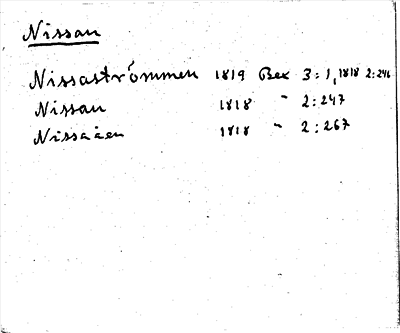 Nissan
Nissaströmmen 1819 Bex 3:1, 1818 2:246
Nissan 1818 " 2:247
Nissåen 1818 " 2:267